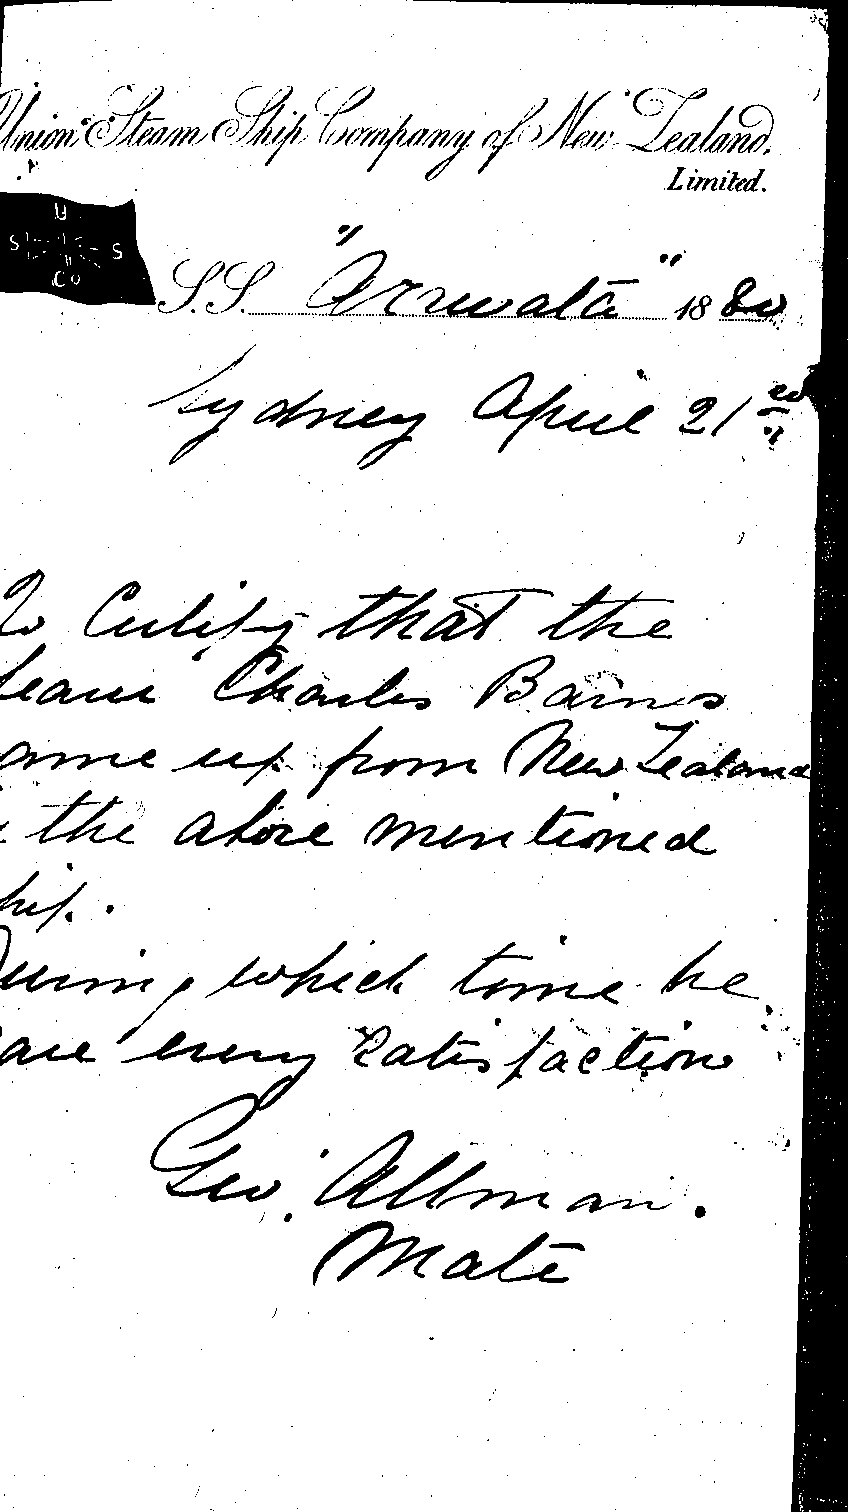 Union Steam Ship Company of New Zealand,
Limited.
U
S S S
Co
S.S. "Arawata" 1880
Sydney April 21
To Certify that the
Charles Barnes
ame up from New Zealand
the above mentioned
hip.
During which time he
ave every satisfaction
Geo. Allman.
Mate